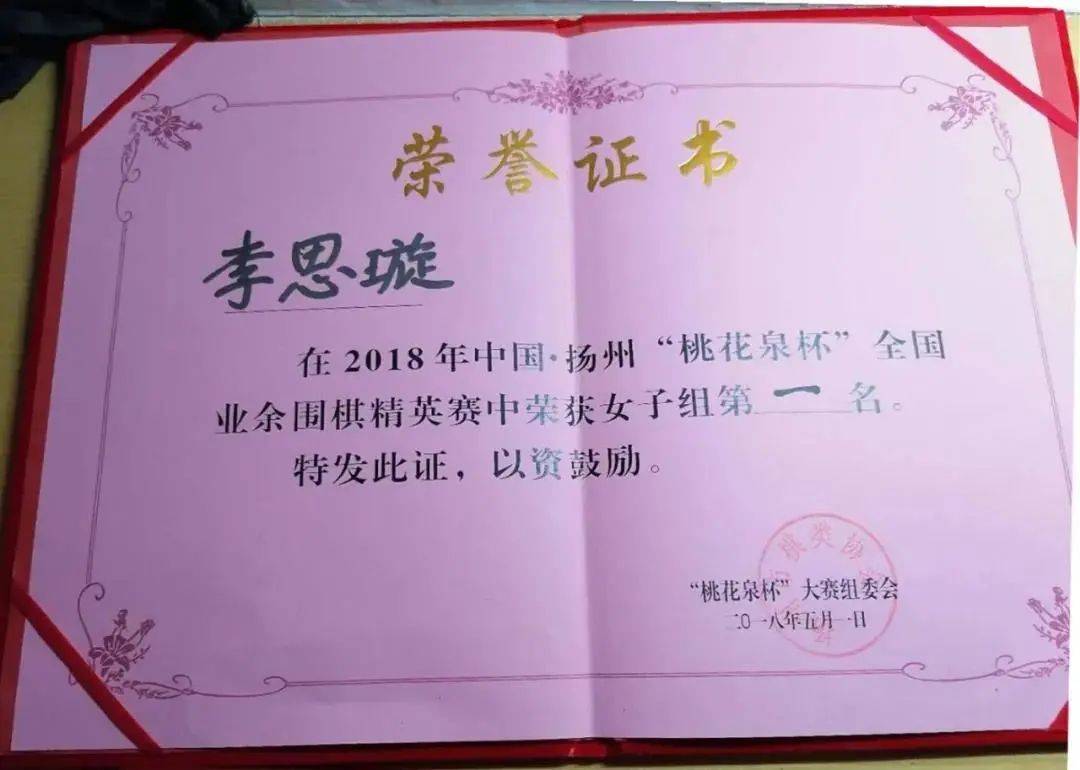 荣誉证书
李思璇
在2018年中国·扬州“桃花泉杯”全国
业余围棋精英赛中荣获女子组第一名。
特发此证，以资鼓励。
棋类协
“桃花泉杯”大赛组委会
二〇一八年五月一日